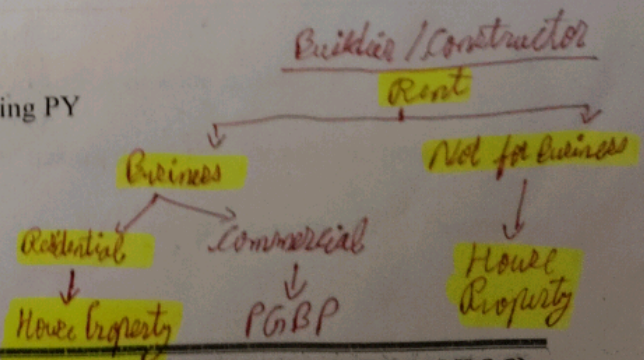 Builder/Constructor
Rent
ing PY
Business
Not for Business
Residential
Commercial
House Property
House Property
PGBP